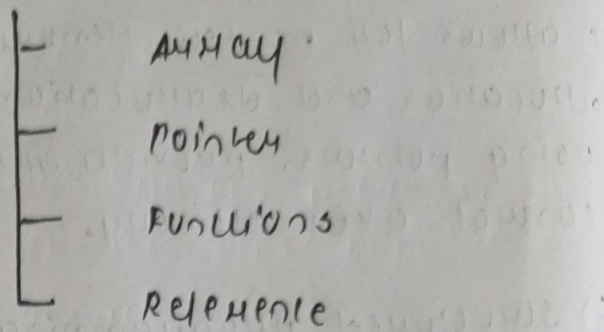 Array
Pointer
Functions
Reference